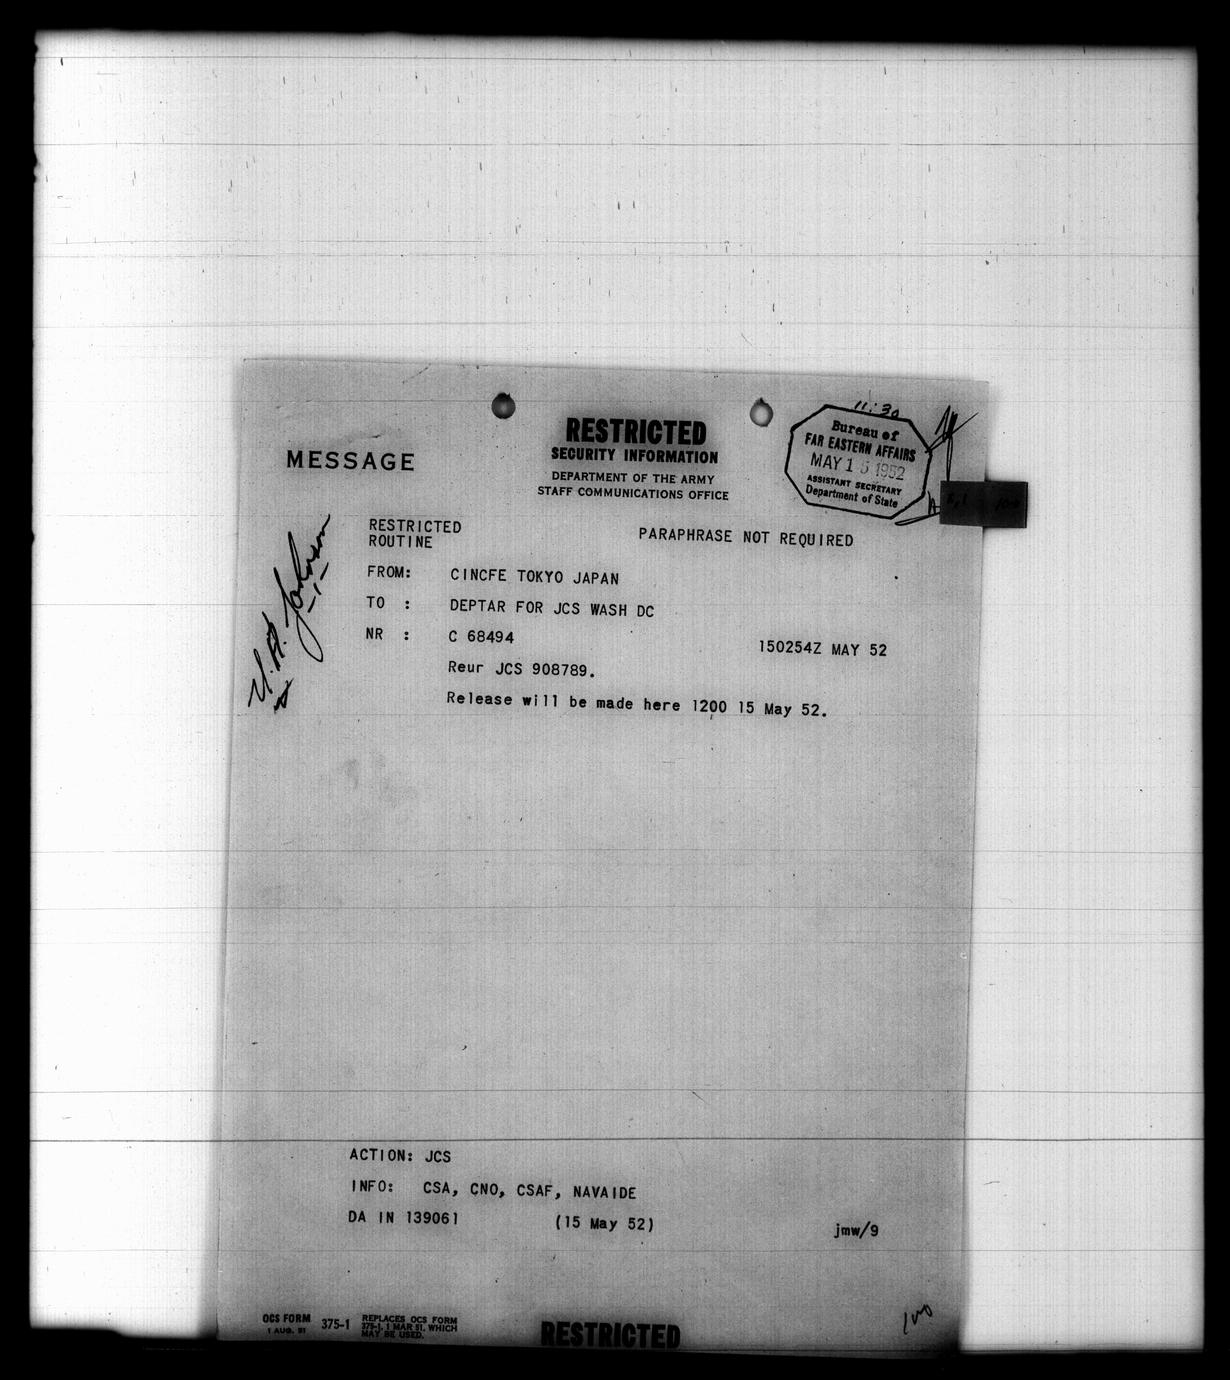 11:30
RESTRICTED
SECURITY INFORMATION
DEPARTMENT OF THE ARMY
STAFF COMMUNICATIONS OFFICE
MESSAGE
Bureau of
FAR EASTERN AFFAIRS
MAY 15 1952
ASSISTANT SECRETARY
Department of State
RESTRICTED
ROUTINE
PARAPHRASE NOT REQUIRED
FROM: CINCFE TOKYO JAPAN
TO : DEPTAR FOR JCS WASH DC
NR : C 68494 150254Z MAY 52
Reur JCS 908789.
Release will be made here 1200 15 May 52.
Johnson
ACTION: JCS
INFO: CSA, CNO, CSAF, NAVAIDE
DA IN 139061 (15 May 52) jmw/9
OCS FORM 375-1
1 AUG. 51
REPLACES OCS FORM
375-1, 1 MAR 51, WHICH
MAY BE USED.
RESTRICTED
100